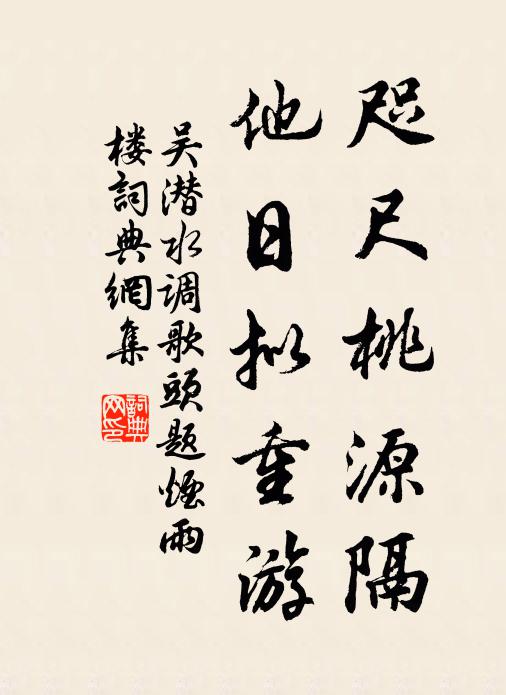 咫尺桃源隔
他日拟重游
吴潜水调歌头题烟雨
楼詞典網集
詞典网印